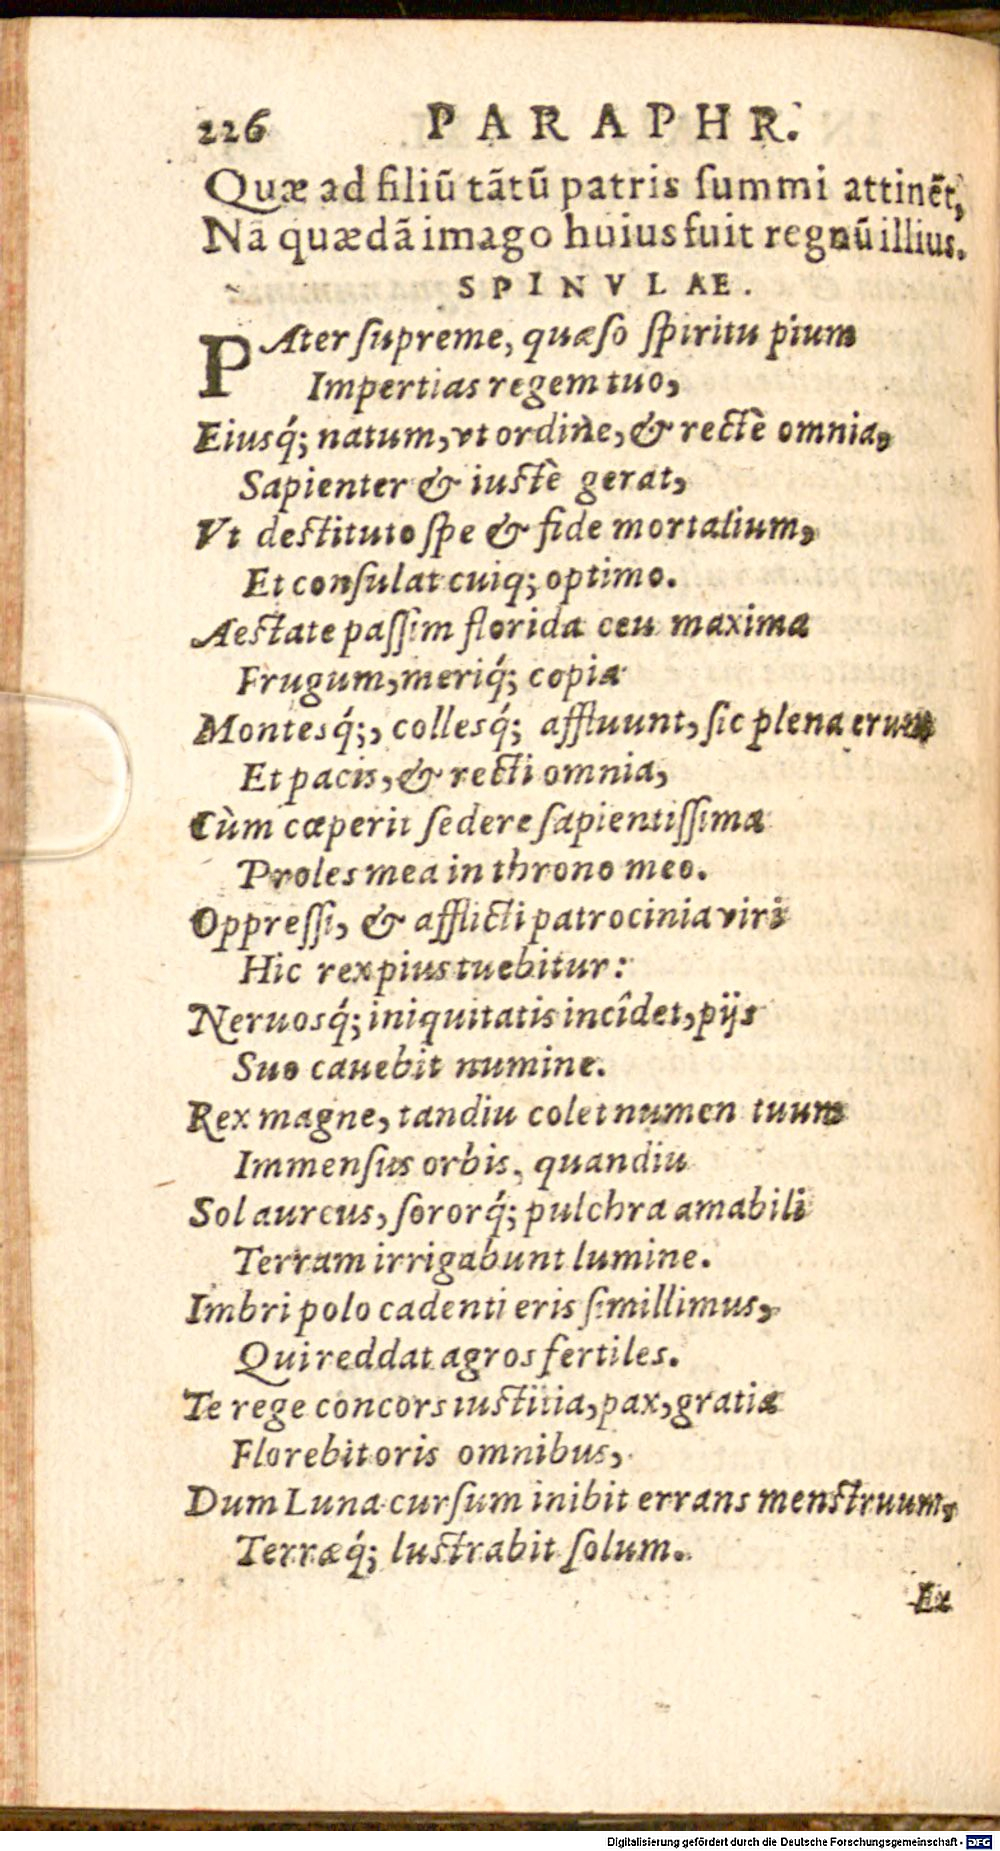 226 PARAPHR.
Quæ ad filiū tãtū patris ſummi attinẽt,
Nã quædã imago huius fuit regnū illius.
SPINVLAE.
PAter ſupreme, quæſo ſpiritu pium
Impertias regem tuo,
Eiusq́; natum, vt ordine, & rectè omnia,
Sapienter & iustè gerat,
Vt destituto ſpe & fide mortalium,
Et conſulat cuiq; optimo.
Aestate paſſim florida ceu maxima
Frugum, meriq́; copia
Montesq́;, collesq́; affluunt, ſic plena erunt
Et pacis, & recti omnia,
Cùm cœperit ſedere ſapientiſſima
Proles mea in throno meo.
Oppreſſi, & afflicti patrocinia viri
Hic rex pius tuebitur:
Neruosq́; iniquitatis incîdet, pijs
Suo cauebit numine.
Rex magne, tandiu colet numen tuum
Immenſus orbis, quandiu
Sol aureus, ſororq́; pulchra amabili
Terram irrigabunt lumine.
Imbri polo cadenti eris ſimillimus,
Qui reddat agros fertiles.
Te rege concors iustitia, pax, gratia
Florebit oris omnibus,
Dum Luna curſum inibit errans menstruum,
Terræq́; lustrabit ſolum.
Ex
Digitalisierung gefördert durch die Deutsche Forschungsgemeinschaft - DFG